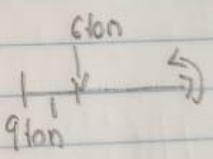 6ton
9ton